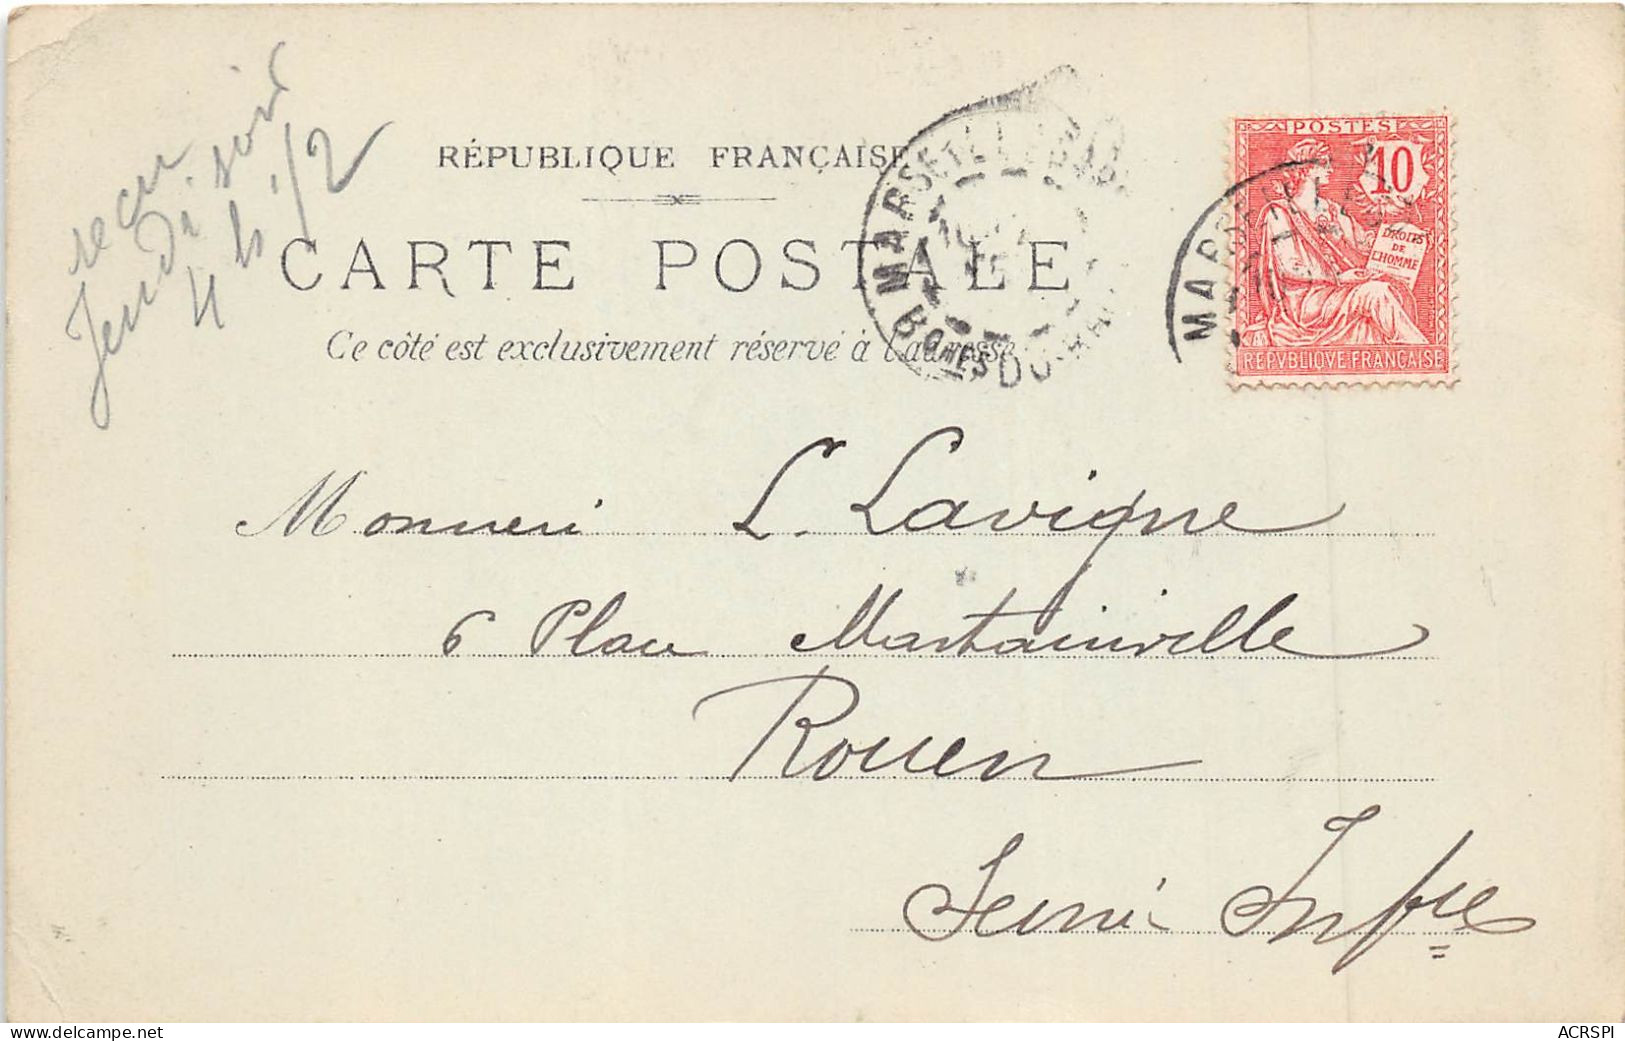 recu
Jeudi soir
4 h 1/2
RÉPUBLIQUE FRANÇAISE
CARTE POSTALE
Ce côté est exclusivement réservé à l'adresse
MARSEILLE
BCHES DU RHONE
POSTES
10
DROITS
DE
L'HOMME
REPVBLIQUE FRANÇAISE
MARSEILLE
Monsieur L. Lavigne
6 Place Martainville
Rouen
Seine Infre
delcampe.net
ACRSPI